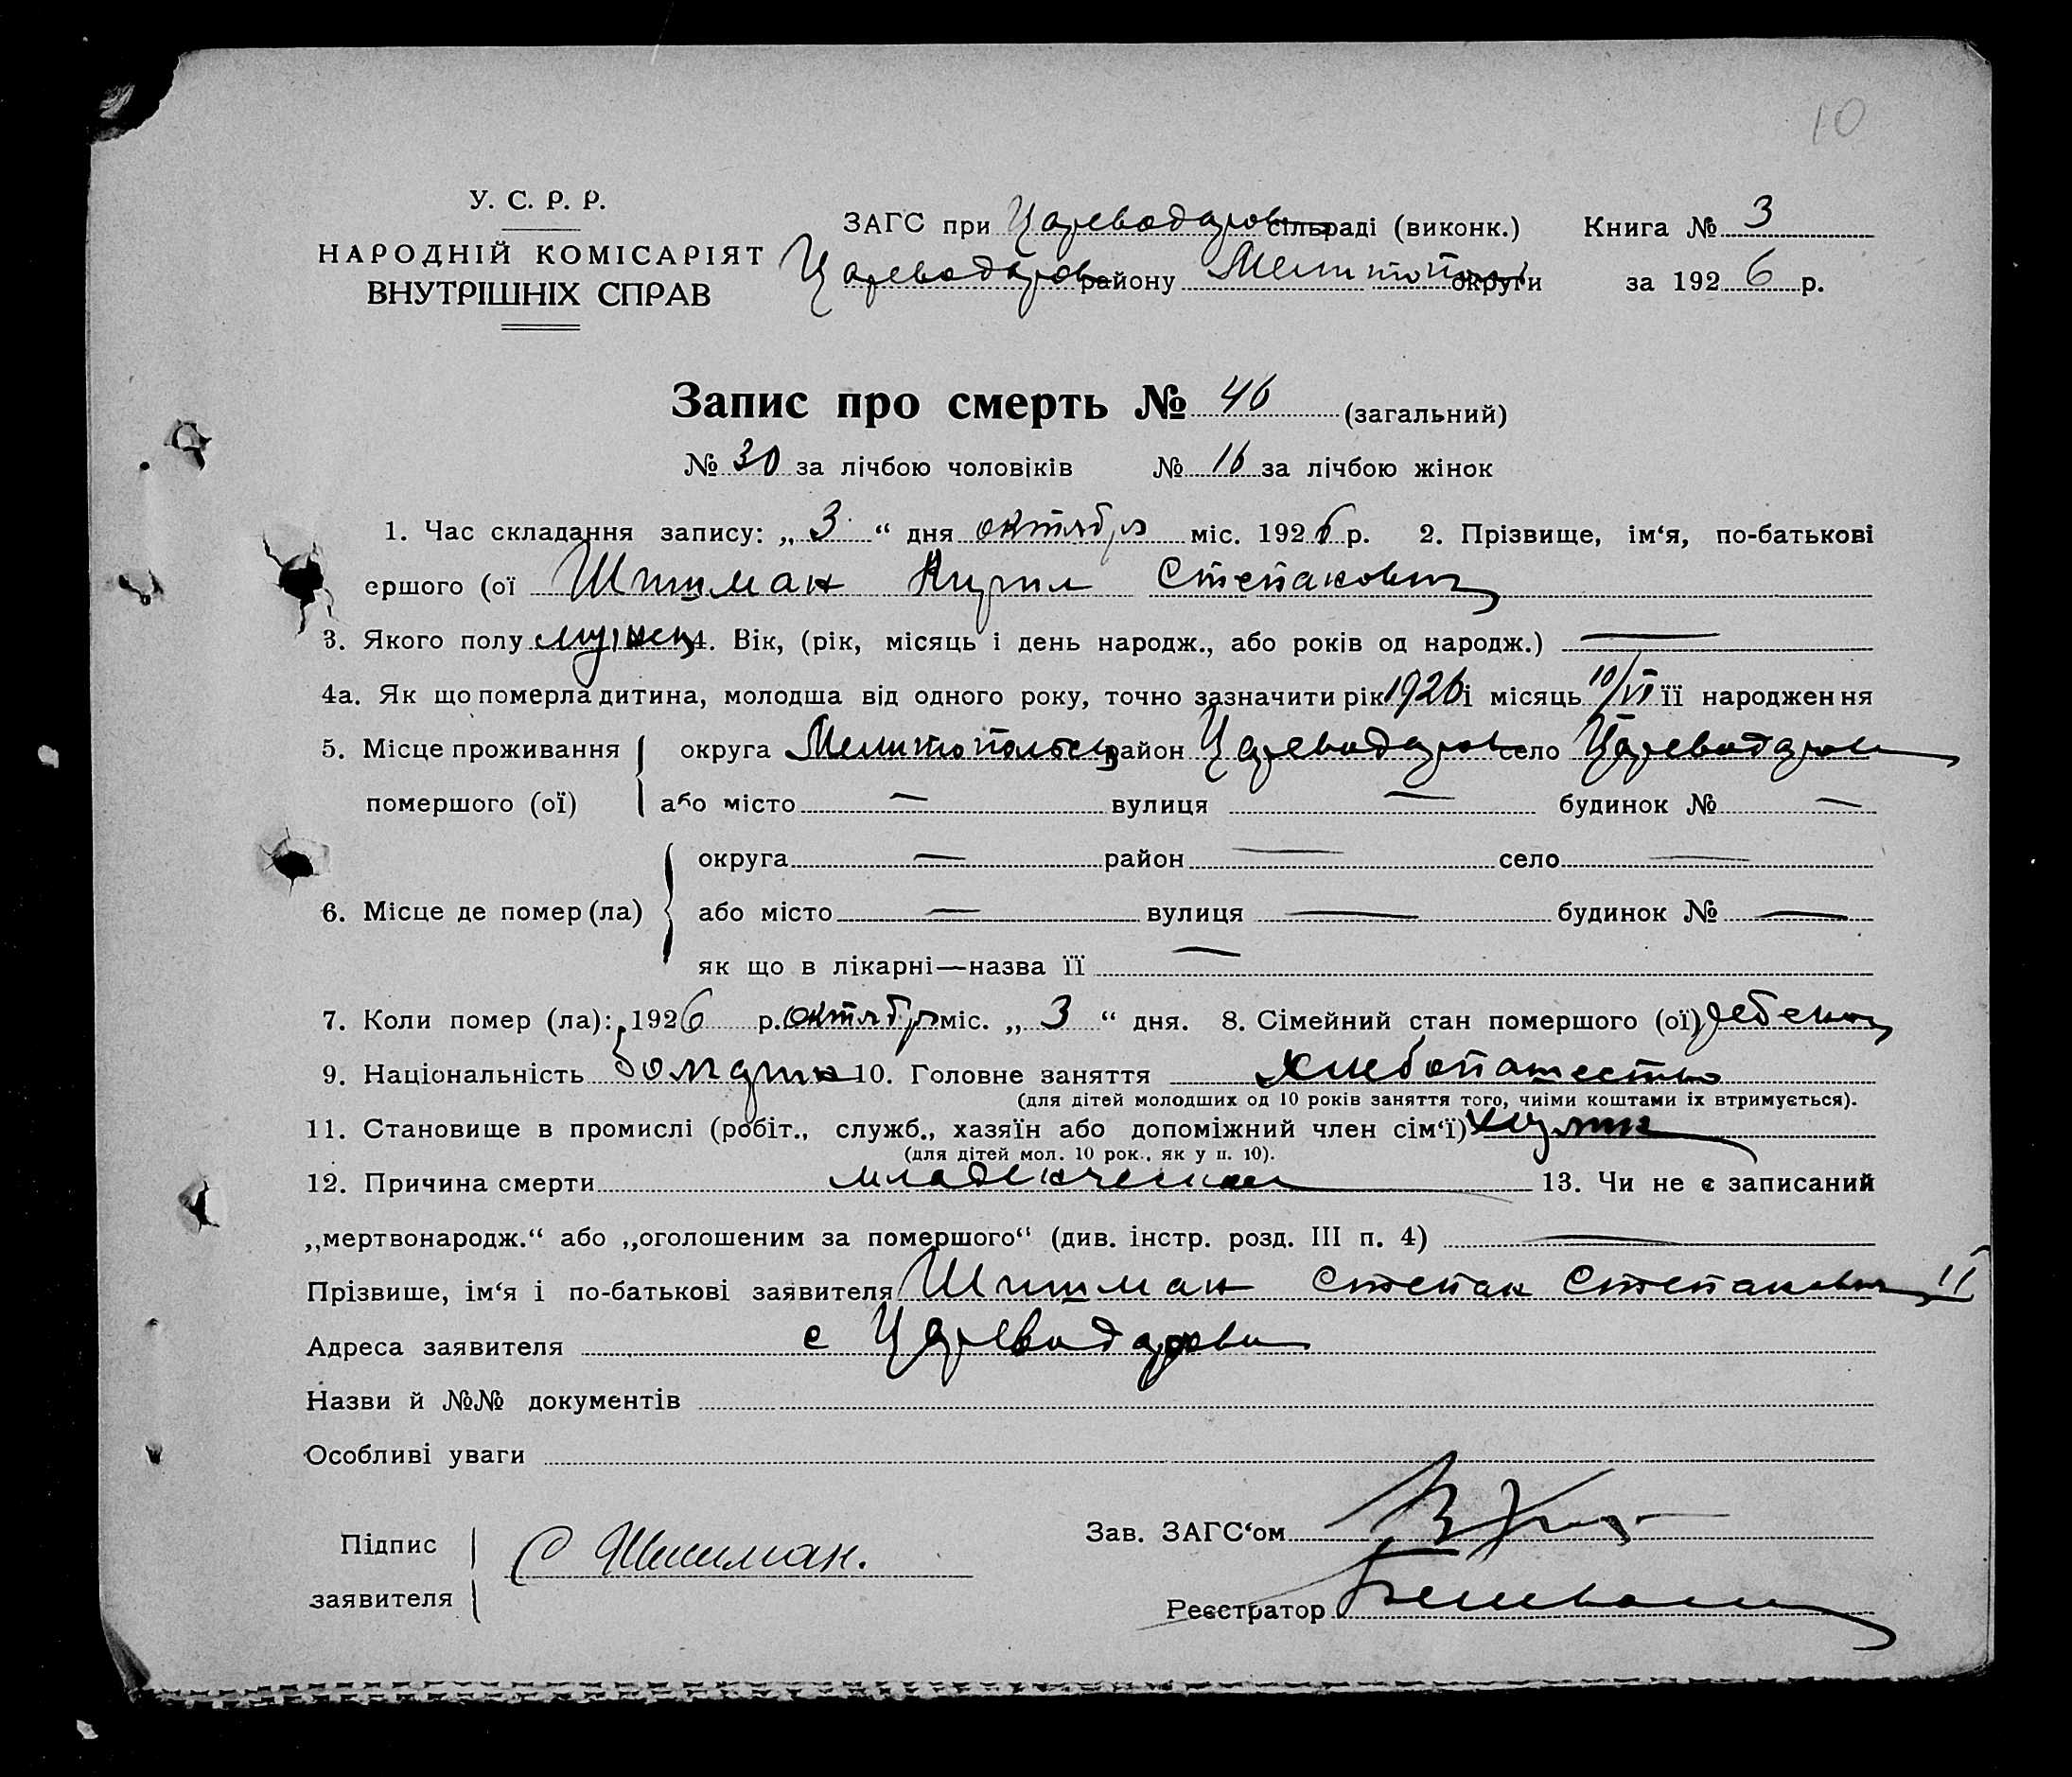 10
У. С. Р. Р.
НАРОДНІЙ КОМІСАРІЯТ
ВНУТРІШНІХ СПРАВ
ЗАГС при Цареводаров сільраді (виконк.) Книга № 3
Цареводаров району Мелитопол округи за 1926 р.
Запис про смерть № 46 (загальний)
№ 30 за лічбою чоловіків № 16 за лічбою жінок
1. Час складання запису: „ 3 “ дня октября міс. 1926 р. 2. Прізвище, ім‘я, по-батькові
ершого (ої Шишман Кирил Степанович
3. Якого полу мужск 4. Вік, (рік, місяць і день народж., або років од народж.) —
4а. Як що померла дитина, молодша від одного року, точно зазначити рік 1926 і місяць 10/VI її народження
5. Місце проживання округа Мелитопольск район Цареводаров село Цареводаровк
помершого (ої) або місто — вулиця — будинок № —
округа — район — село —
6. Місце де помер (ла) або місто — вулиця — будинок № —
як що в лікарні—назва її —
7. Коли помер (ла): 1926 р. октября міс. „ 3 “ дня. 8. Сімейний стан помершого (ої) ребенок
9. Національність болгарин 10. Головне заняття хлебопашество
(для дітей молодших од 10 років заняття того, чиіми коштами їх втримується).
11. Становище в промислі (робіт., служб., хазяїн або допоміжний член сім‘ї)
(для дітей мол. 10 рок., як у п. 10).
12. Причина смерти младенческая 13. Чи не є записаний
„мертвонародж.“ або „оголошеним за помершого“ (див. інстр. розд. III п. 4) —
Прізвише, ім‘я і по-батькові заявителя Шишман Степан Степанович II
Адреса заявителя с Цареводаровка
Назви й №№ документів
Особливі уваги
Підпис заявителя С Шишман.
Зав. ЗАГС‘ом
Реєстратор